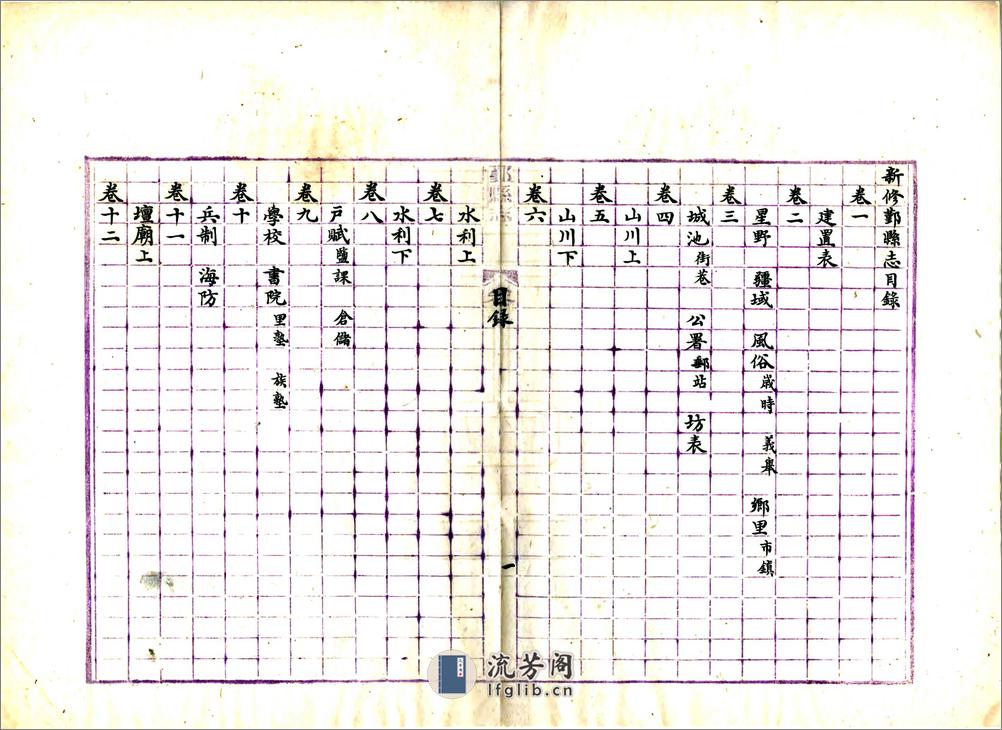 新修鄞縣志目錄
卷一
建置表
卷二
星野 疆域 風俗歲時 義舉 鄉里市鎮
卷三
城池街巷 公署郵站 坊表
卷四
山川上
卷五
山川下
卷六
鄞縣志
目錄
一
水利上
卷七
水利下
卷八
戶賦鹽課 倉儲
卷九
學校 書院里塾 族塾
卷十
兵制 海防
卷十一
壇廟上
卷十二
流芳阁
lfglib.cn